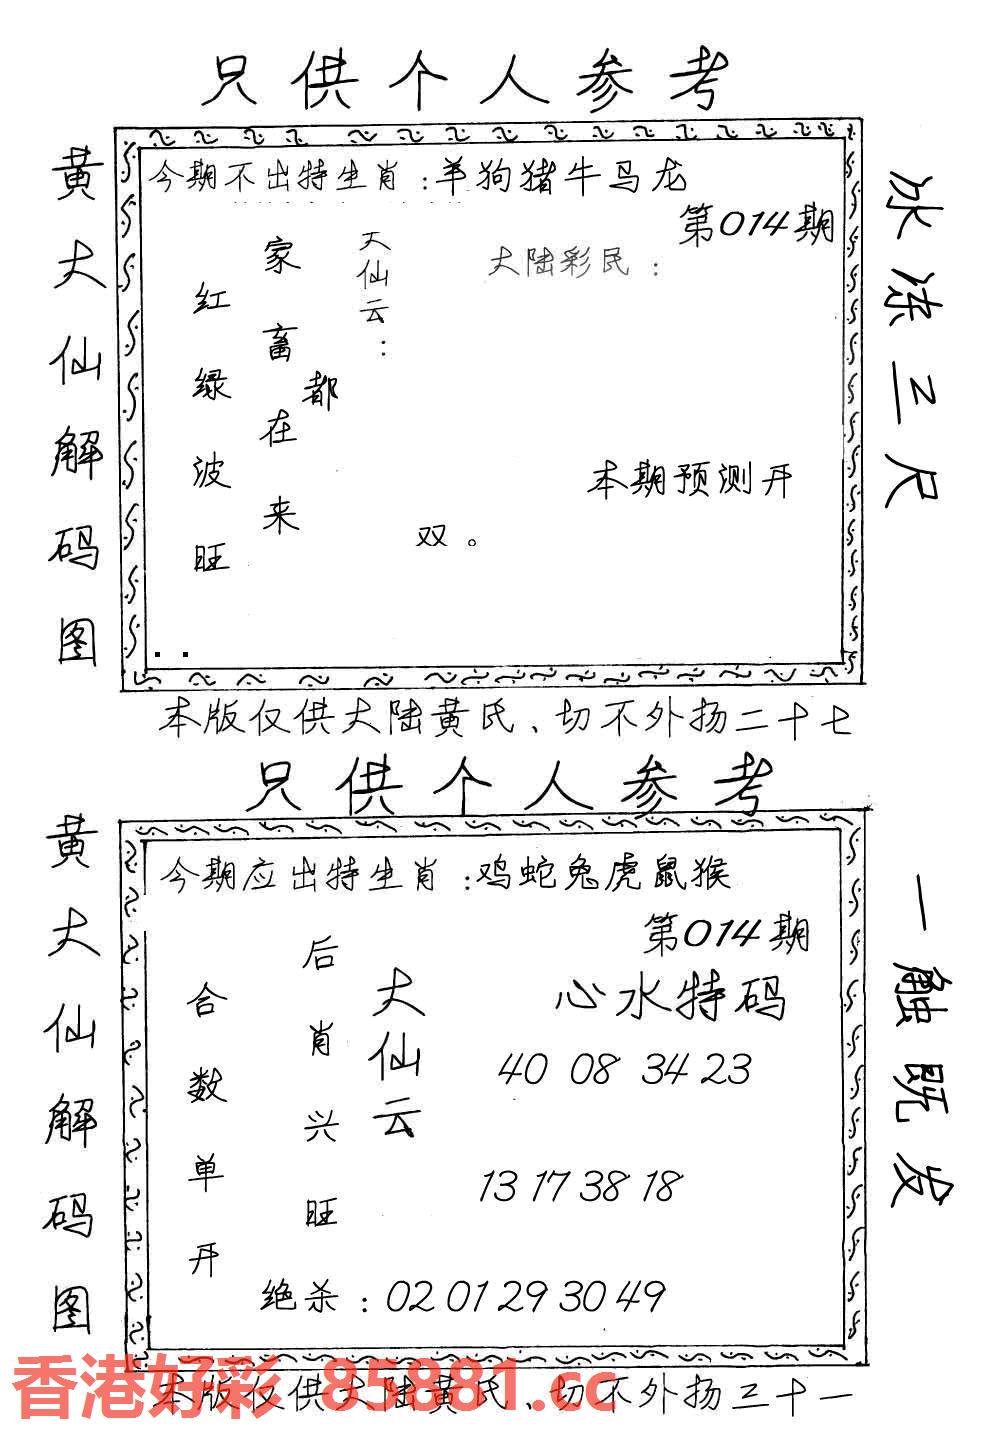 只供个人参考
黄大仙解码图
今期不出特生肖:羊狗猪牛马龙
第014期
大陆彩民:
天仙云:
家畜在来
都
红绿波旺
本期预测开
双。
冰冻三尺
本版仅供大陆黄氏、切不外扬二十七
只供个人参考
黄大仙解码图
今期应出特生肖:鸡蛇兔虎鼠猴
第014期
心水特码
大仙云
后肖兴旺
合数单开
40 08 34 23
13 17 38 18
绝杀:02 01 29 30 49
一触既发
香港好彩 85881.cc
本版仅供大陆黄氏、切不外扬三十一